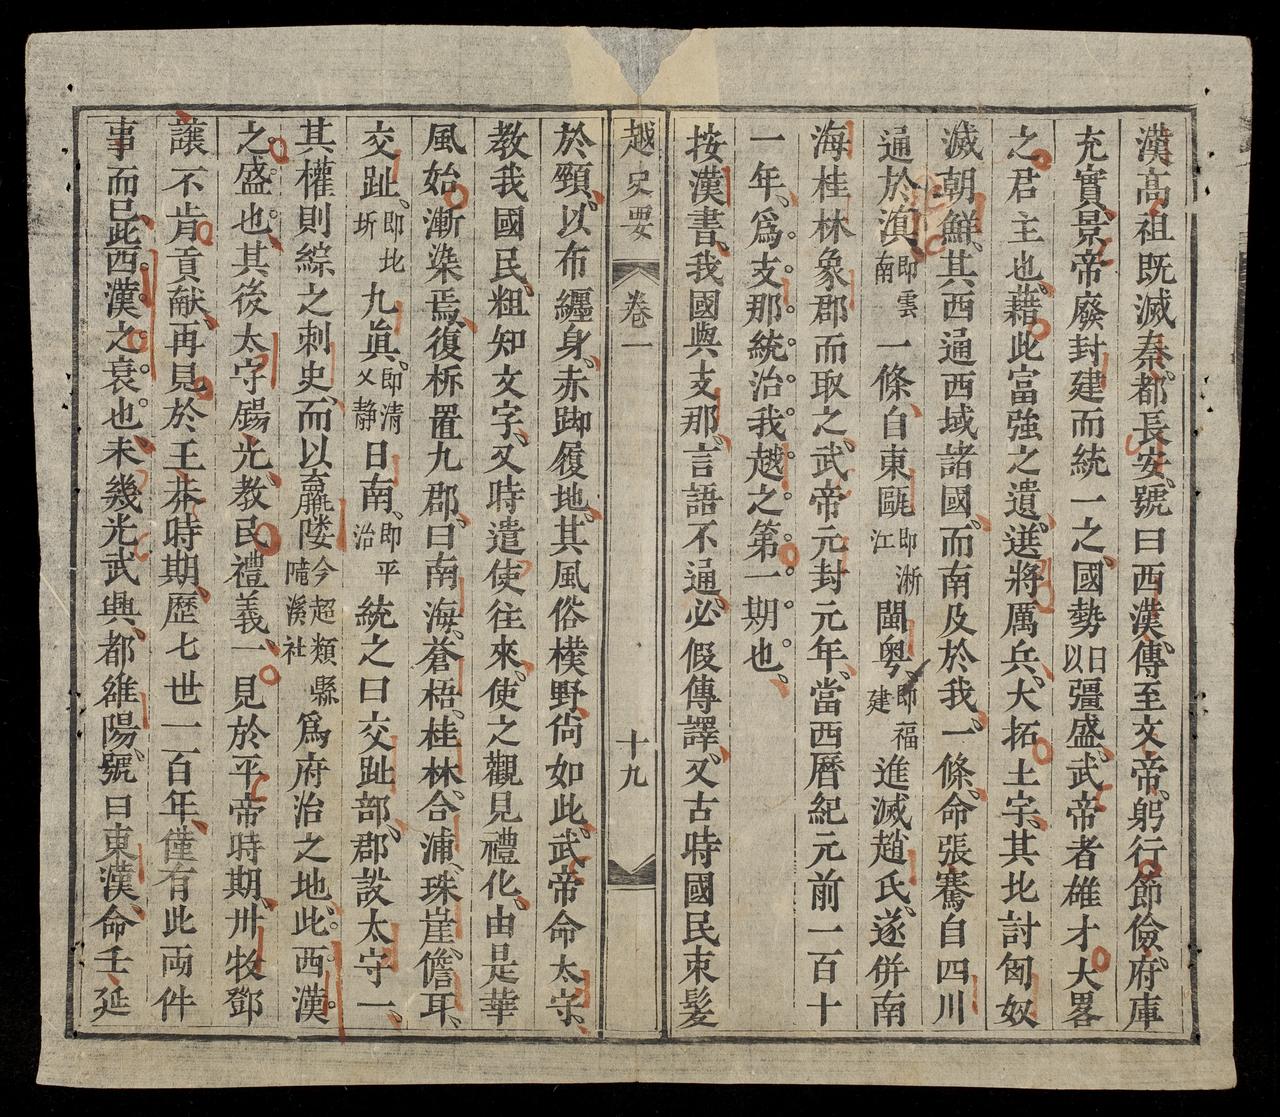 漢高祖既滅秦、都長安、號曰西漢、傳至文帝、躬行節儉、府庫
充實、景帝廢封建而統一之、國勢日以彊盛、武帝者雄才大畧
之君主也、藉此富強之遺、選將厲兵、大拓土宇、其北討匈奴
滅朝鮮、其西通西域諸國、而南及於我、一條、命張騫自四川
通於滇、即雲南一條、自東甌即淅江閩粤、即福建進滅趙氏、遂併南
海桂林象郡而取之、武帝元封元年、當西曆紀元前一百十
一年、爲。支。那。統。治。我。越。之。第。一。期。也。
按漢書、我國與支那、言語不通、必假傳譯、又古時國民束髮
越史要 卷一 十九
於頸、以布纏身、赤踋履地、其風俗樸野尙如此、武帝命太守、
教我國民、粗知文字、又時遣使往來、使之觀見禮化、由是華
風始漸染焉、復柝置九郡、曰南海、蒼梧、桂林、合浦、珠崖、儋耳、
交趾、即北圻九眞、即清乂靜日南、即平治統之曰交趾部、郡設太守一、
其權則綜之刺史、而以𨏩𨻻今超類縣隴溪社爲府治之地、此。西。漢。
之。盛。也、其後太守鍚光、教民禮義、一見於平帝時期、卅牧鄧
讓不肯貢献、再見於王莽時期、歷七世一百年、僅有此両件
事而已、此。西。漢。之。衰。也。未幾光武興、都雒陽、號曰東漢、命壬延